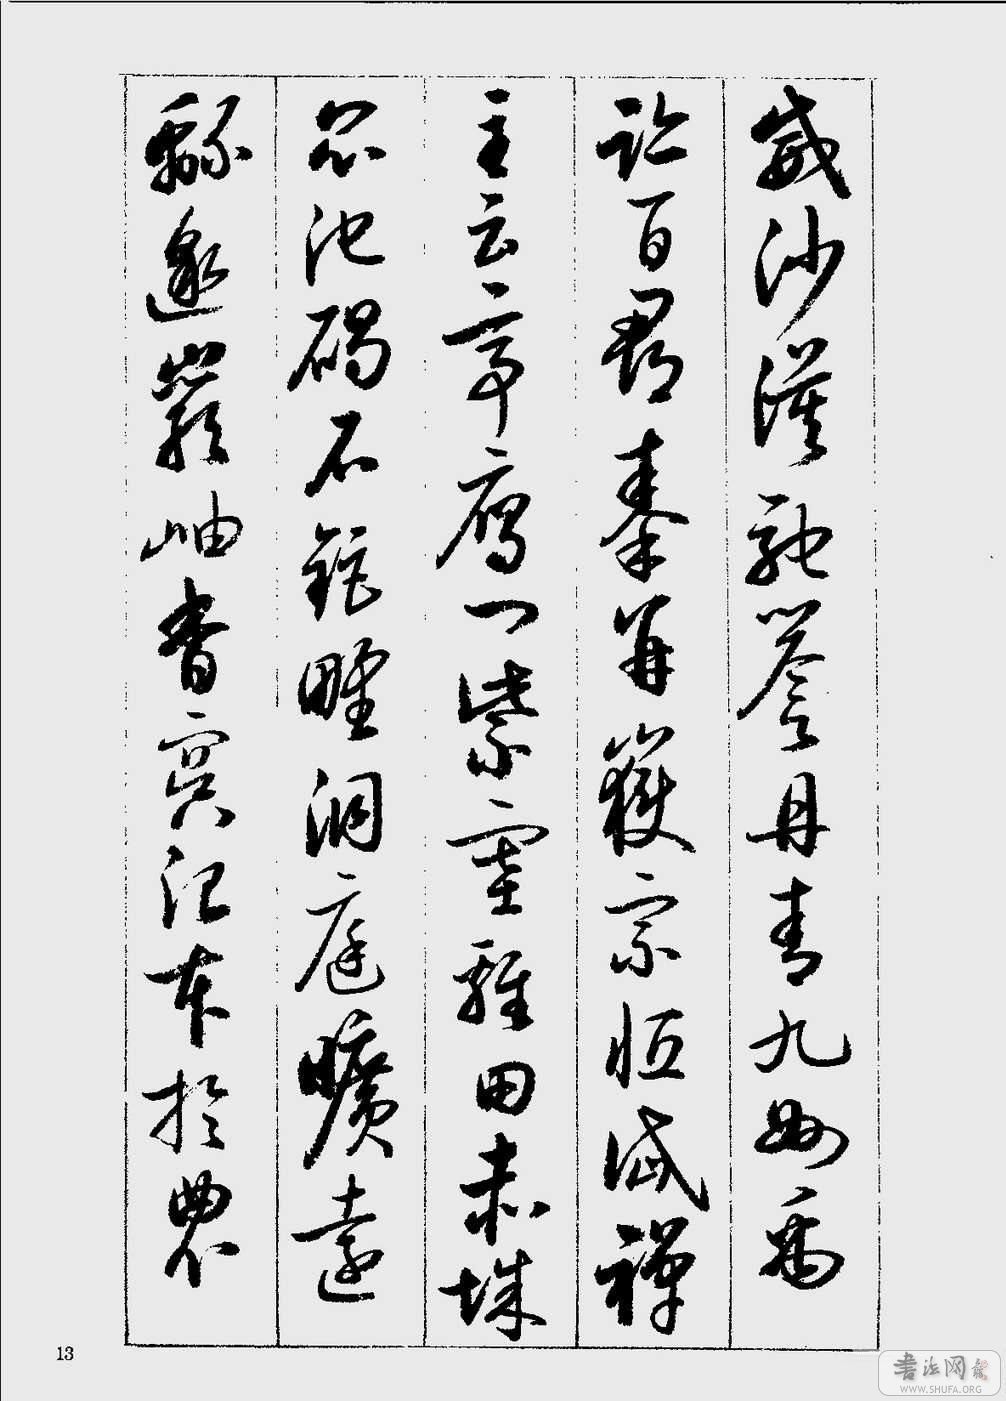 威沙漠馳譽丹青九州禹
跡百郡秦并嶽宗恒岱禪
主云亭鴈門紫塞雞田赤城
昆池碣石鉅野洞庭曠遠
緜邈巖岫杳冥治本於農
13
書法网
WWW.SHUFA.ORG